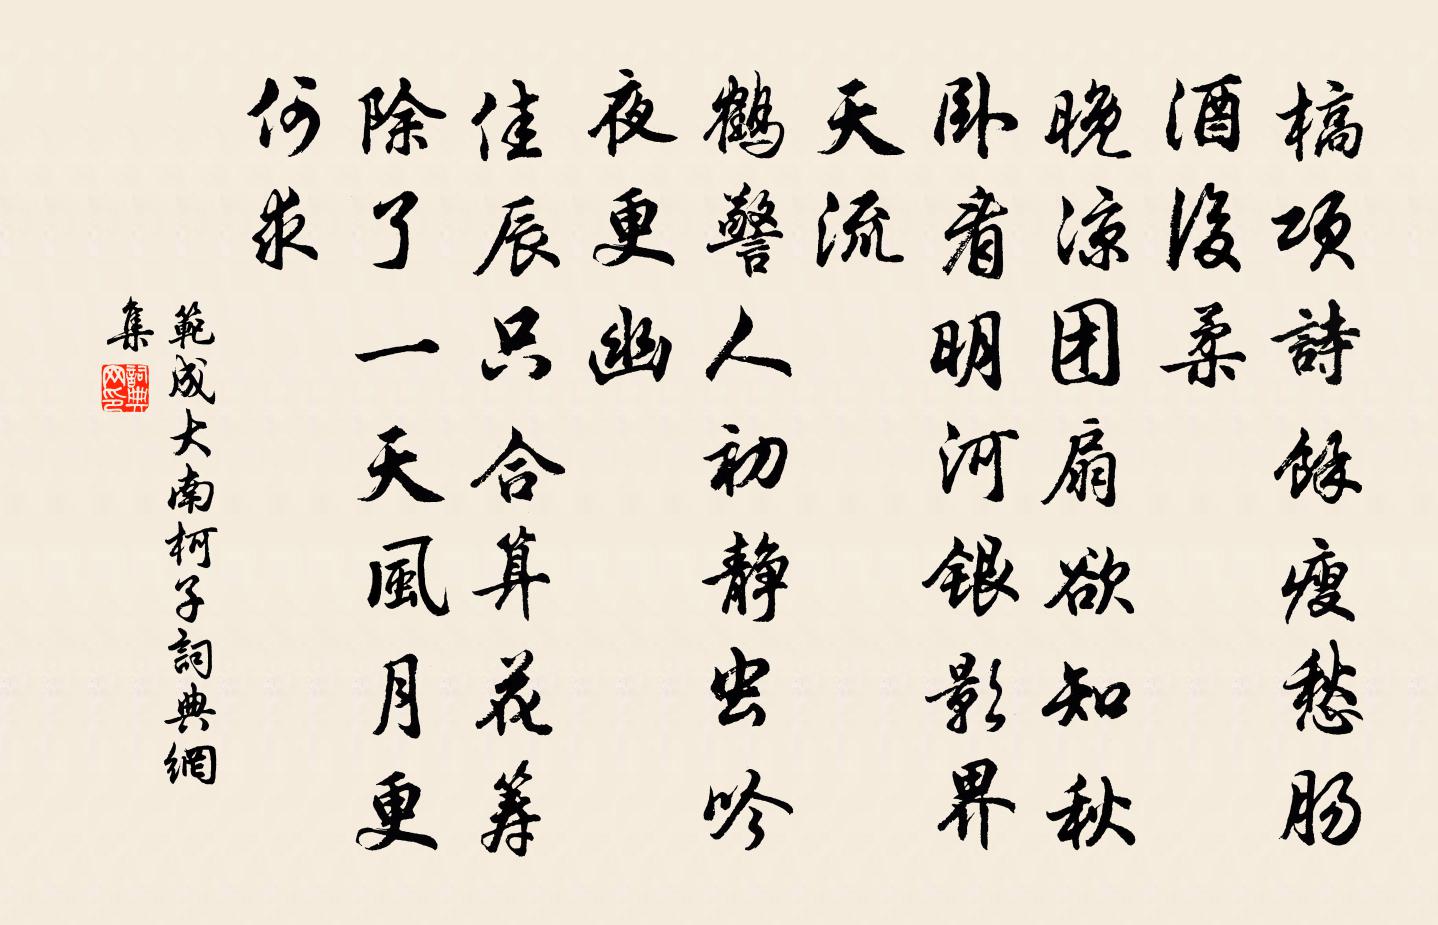 槁项詩餘瘦愁肠
酒後柔
晚凉团扇欲知秋
卧看明河银影界
天流
鶴警人初静虫吟
夜更幽
佳辰只合算花筹
除了一天風月更
何求
範成大南柯子詞典網
集
詞典网印